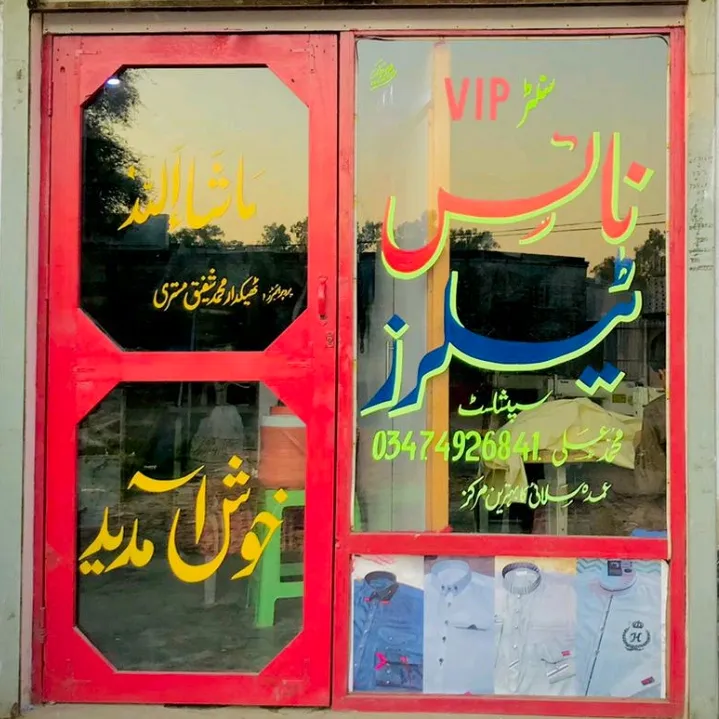 ماشاءاللہ
پروپرائٹرز: ٹھیکیدار محمد شفیق مستری
خوش آمدید
VIP سنٹر
نائس
ٹیلرز
سپیشلسٹ
محمد علی 03474926841
عمدہ سلائی کا بہترین مرکز
H